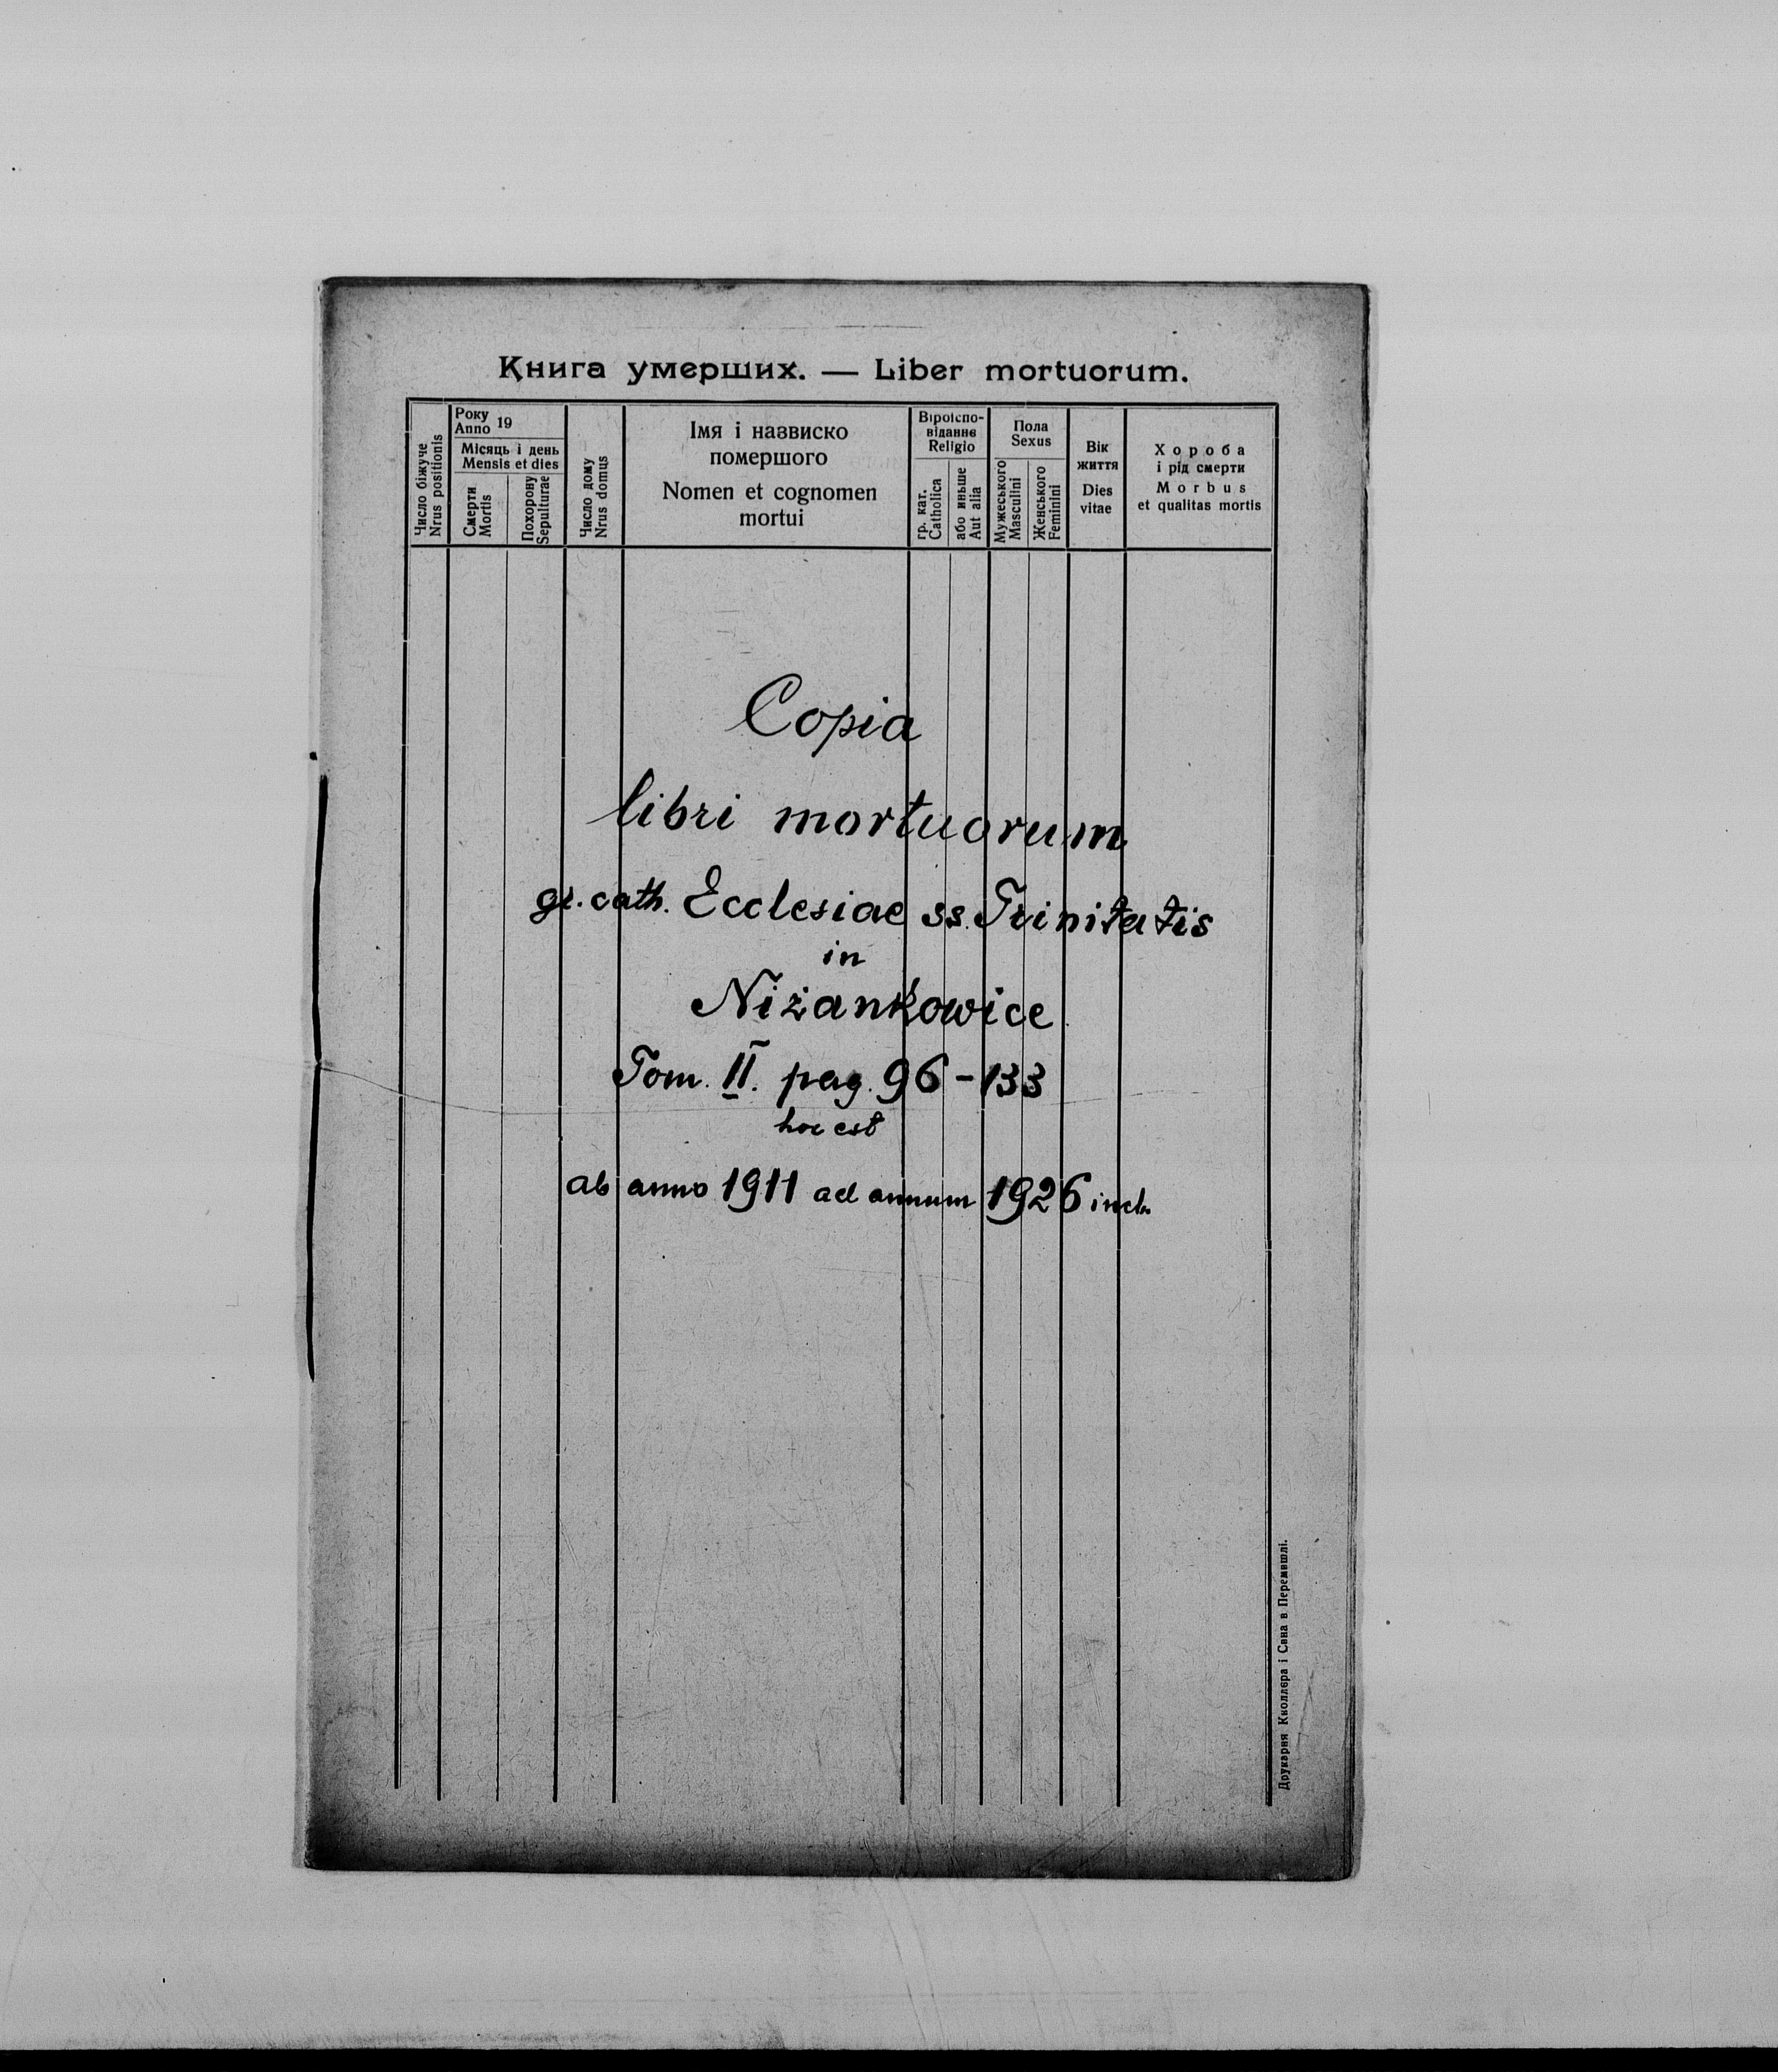 Книга умерших. — Liber mortuorum.
Число біжуче
Nrus positionis
Року
Anno 19
Місяць і день
Mensis et dies
Смерти
Mortis
Похорону
Sepulturae
Число дому
Nrus domus
Імя і назвиско
померш​ого
Nomen et cognomen
mortui
Віроіспо-
віданнє
Religio
гр. кат.
Catholica
або иньше
Aut alia
Пола
Sexus
Мужеського
Masculini
Женського
Feminini
Вік
життя
Dies
vitae
Хороба
і рід смерти
Morbus
et qualitas mortis
Copia
libri mortuorum
gr. cath. Ecclesiae ss. Trinitatis
in
Niżankowice
Tom. II. pag. 96-133
hoc est
ab anno 1911 ad annum 1926 incl.
Друкарня Кноллера і Сина в Перемишлі.